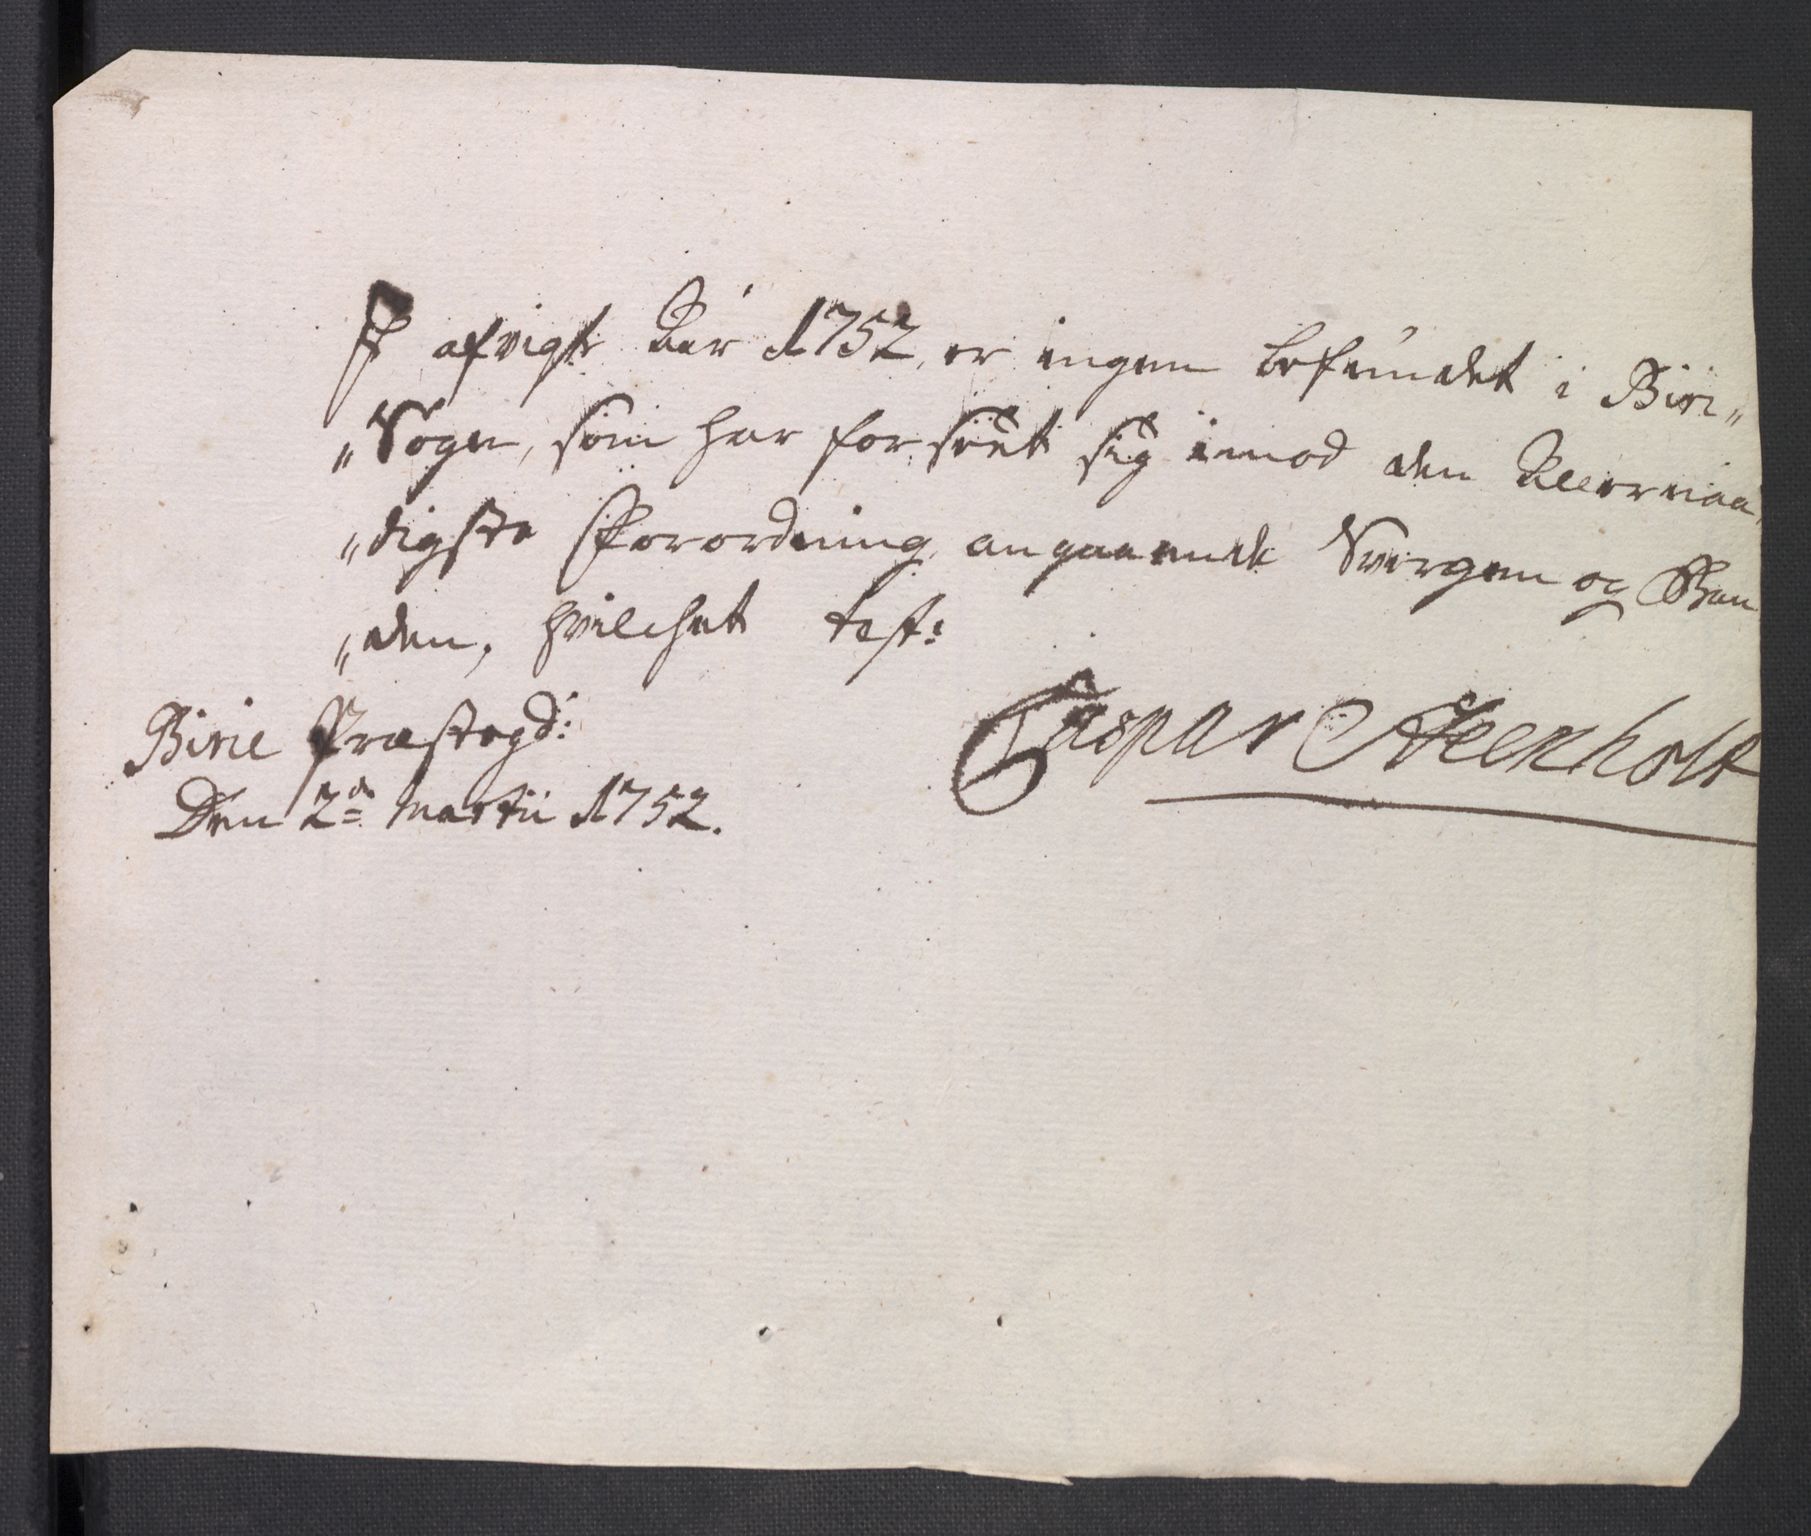 I afvigte Aar 1752, er ingen befundet i Biri„
„Sogn, som har forseet sig imod den Allernaa„
„digste Forordning angaaende Svergen og Ban
„den, hvilchet test:
Birie Præstegd:
Caspar Steenholt
Den 2de Martii 1752.